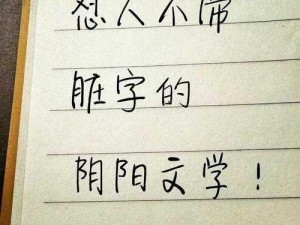 怼人不带
脏字的
阴阳文学！